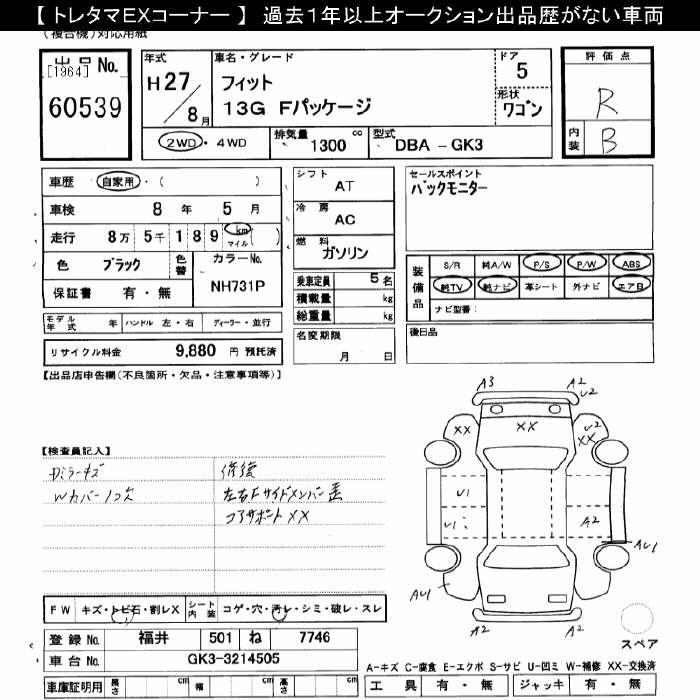 【 トレタマEXコーナー 】 過去1年以上オークション出品歴がない車両
(複合機)対応用紙
出品No.
[1964]
60539
年式
H27/8月
車名・グレード
フィット
13G Fパッケージ
ドア
5
形状
ワゴン
評価点
R
内装
B
2WD・4WD
排気量
1300 cc
型式
DBA - GK3
車歴 自家用・( )
車検 8 年 5 月
走行 8万 5千 1 8 9 km マイル ( )
色 ブラック
色替
カラーNo.
NH731P
保証書 有・無
モデル年式 年 ハンドル 左・右 ディーラー・並行
リサイクル料金 9,880 円 預託済
シフト
AT
冷房
AC
燃料
ガソリン
乗車定員 5 名
積載量 kg
総重量 kg
名変期限
月 日
セールスポイント
バックモニター
装備品
S/R 純A/W P/S P/W ABS
純TV 純ナビ 革シート 外ナビ エアB
ナビ型番:
後日品
【出品店申告欄(不良箇所・欠品・注意事項等)】
【検査員記入】
Dミラーキズ
Wカバー1コ欠
修復
左右Fサイドメンバー歪
コアサポートXX
A3
A2
U2
XX
XX
U2
XX
U1
U1
A2
AU1
AU1
A2
A2
スペア
FW キズ・トビ石・割レX
シート内装 コゲ・穴・汚レ・シミ・破レ・スレ
登録No. 福井 501 ね 7746
車台No. GK3-3214505
車庫証明用 長さ cm 幅 cm 高さ cm
A-キズ C-腐食 E-エクボ S-サビ U-凹ミ W-補修 XX-交換済
工具 有・無 ジャッキ 有・無